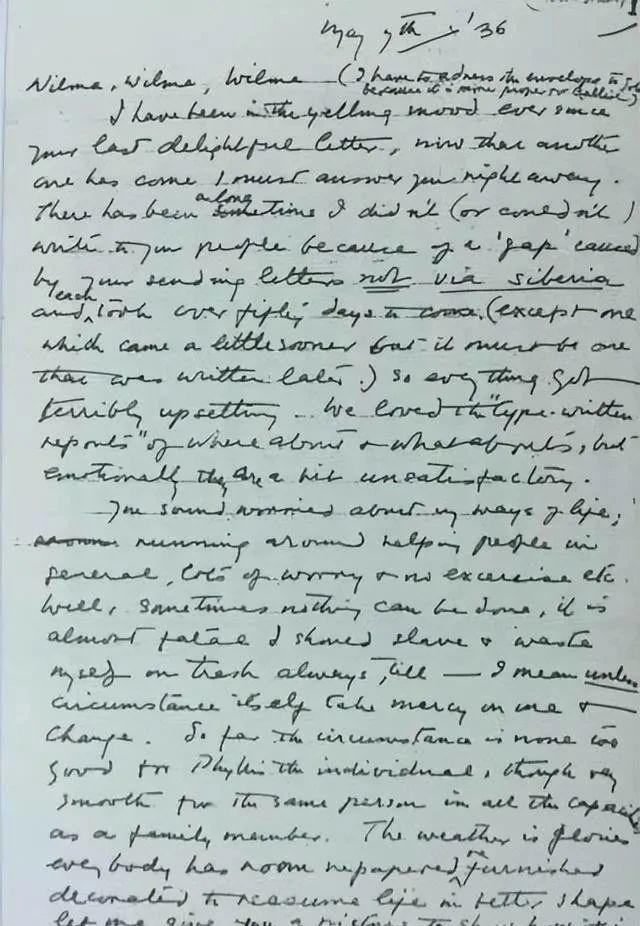 May 7th '36
Wilma, Wilma, Wilma (I have to adress the envelope to John
because it is more proper or polite)
I have been in the yelling mood ever since
your last delightful letter, now that another
one has come I must answer you right away.
There has been a long sometime I didn't (or couldn't)
write to you people because of a 'gap' caused
by your sending letters not via Siberia
and each took over fifty days to come. (except one
which came a little sooner but it must be one
that was written later.) So everything got
terribly upsetting. We loved the "type-written
reports" of where abouts & what abouts, but
emotionally they are a bit unsatisfactory.
You sound worried about my ways of life,
running around helping people in
general, lots of worry & no excercise etc.
Well, sometimes nothing can be done, it is
almost fatal I should slave & waste
myself on trash always, till — I mean unless
circumstance itself take mercy on me &
change. So far the circumstance is none too
good for Phyllis the individual, though very
smooth for the same person in all the capacities
as a family member. The weather is glorious
everybody has room repapered, refurnished
decorated to reassume life in better shape
let me give you a picture to show how it is